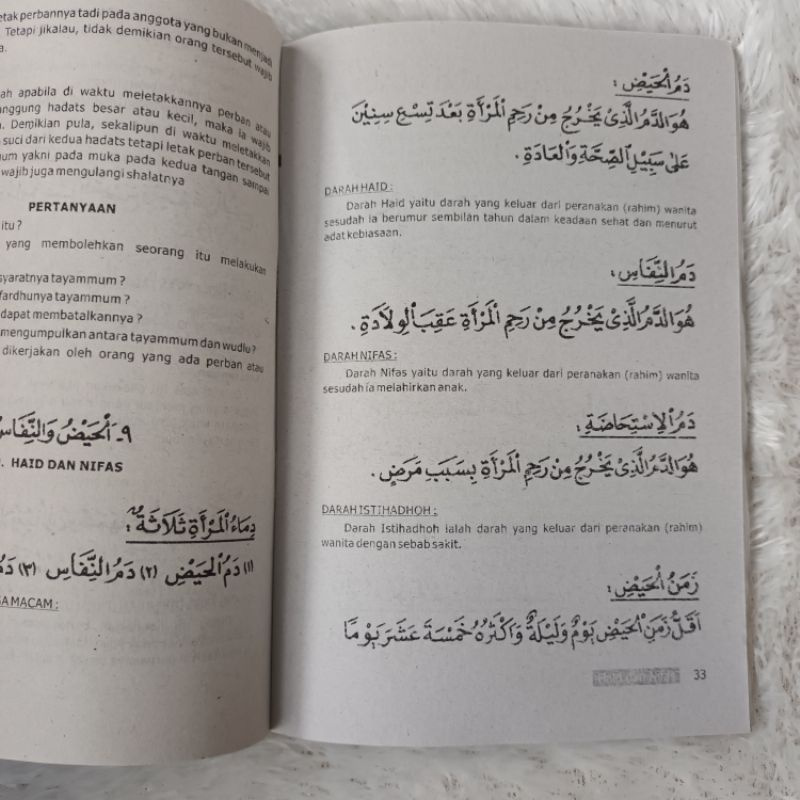 etak perbannya tadi pada anggota yang bukan menjadi
Tetapi jikalau, tidak demikian orang tersebut wajib
a.
ah apabila di waktu meletakkannya perban atau
anggung hadats besar atau kecil, maka ia wajib
. Demikian pula, sekalipun di waktu meletakkan
suci dari kedua hadats tetapi letak perban tersebut
mum yakni pada muka pada kedua tangan sampai
wajib juga mengulangi shalatnya
PERTANYAAN
itu ?
yang membolehkan seorang itu melakukan
syaratnya tayammum ?
fardhunya tayammum ?
dapat membatalkannya ?
mengumpulkan antara tayammum dan wudlu ?
dikerjakan oleh orang yang ada perban atau
٩- اَلْحَيْضُ وَالنِّفَاس
. HAID DAN NIFAS
دِمَاءُ الْمَرْأَةِ ثَلَاثَةٌ :
(١) دَمُ الْحَيْضِ (٢) دَمُ النِّفَاسِ (٣) دَمُ
GA MACAM :
دَمُ الْحَيْضِ :
هُوَ الدَّمُ الَّذِيْ يَخْرُجُ مِنْ رَحِمِ الْمَرْأَةِ بَعْدَ تِسْعِ سِنِيْنَ
عَلَى سَبِيْلِ الصِّحَّةِ وَالْعَادَةِ .
DARAH HAID :
Darah Haid yaitu darah yang keluar dari peranakan (rahim) wanita
sesudah ia berumur sembilan tahun dalam keadaan sehat dan menurut
adat kebiasaan.
دَمُ النِّفَاسِ :
هُوَ الدَّمُ الَّذِيْ يَخْرُجُ مِنْ رَحِمِ الْمَرْأَةِ عَقِبَ الْوِلَادَةِ .
DARAH NIFAS :
Darah Nifas yaitu darah yang keluar dari peranakan (rahim) wanita
sesudah ia melahirkan anak.
دَمُ الْاِسْتِحَاضَةِ :
هُوَ الدَّمُ الَّذِيْ يَخْرُجُ مِنْ رَحِمِ الْمَرْأَةِ بِسَبَبِ مَرَضٍ .
DARAH ISTIHADHOH :
Darah Istihadhoh ialah darah yang keluar dari peranakan (rahim)
wanita dengan sebab sakit.
زَمَنُ الْحَيْضِ :
اَقَلُّ زَمَنِ الْحَيْضِ يَوْمٌ وَلَيْلَةٌ وَاَكْثَرُهُ خَمْسَةَ عَشَرَ يَوْمًا
33